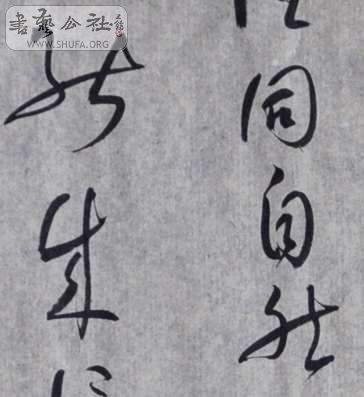 書藝公社
WWW.SHUFA.ORG
同自然
能成